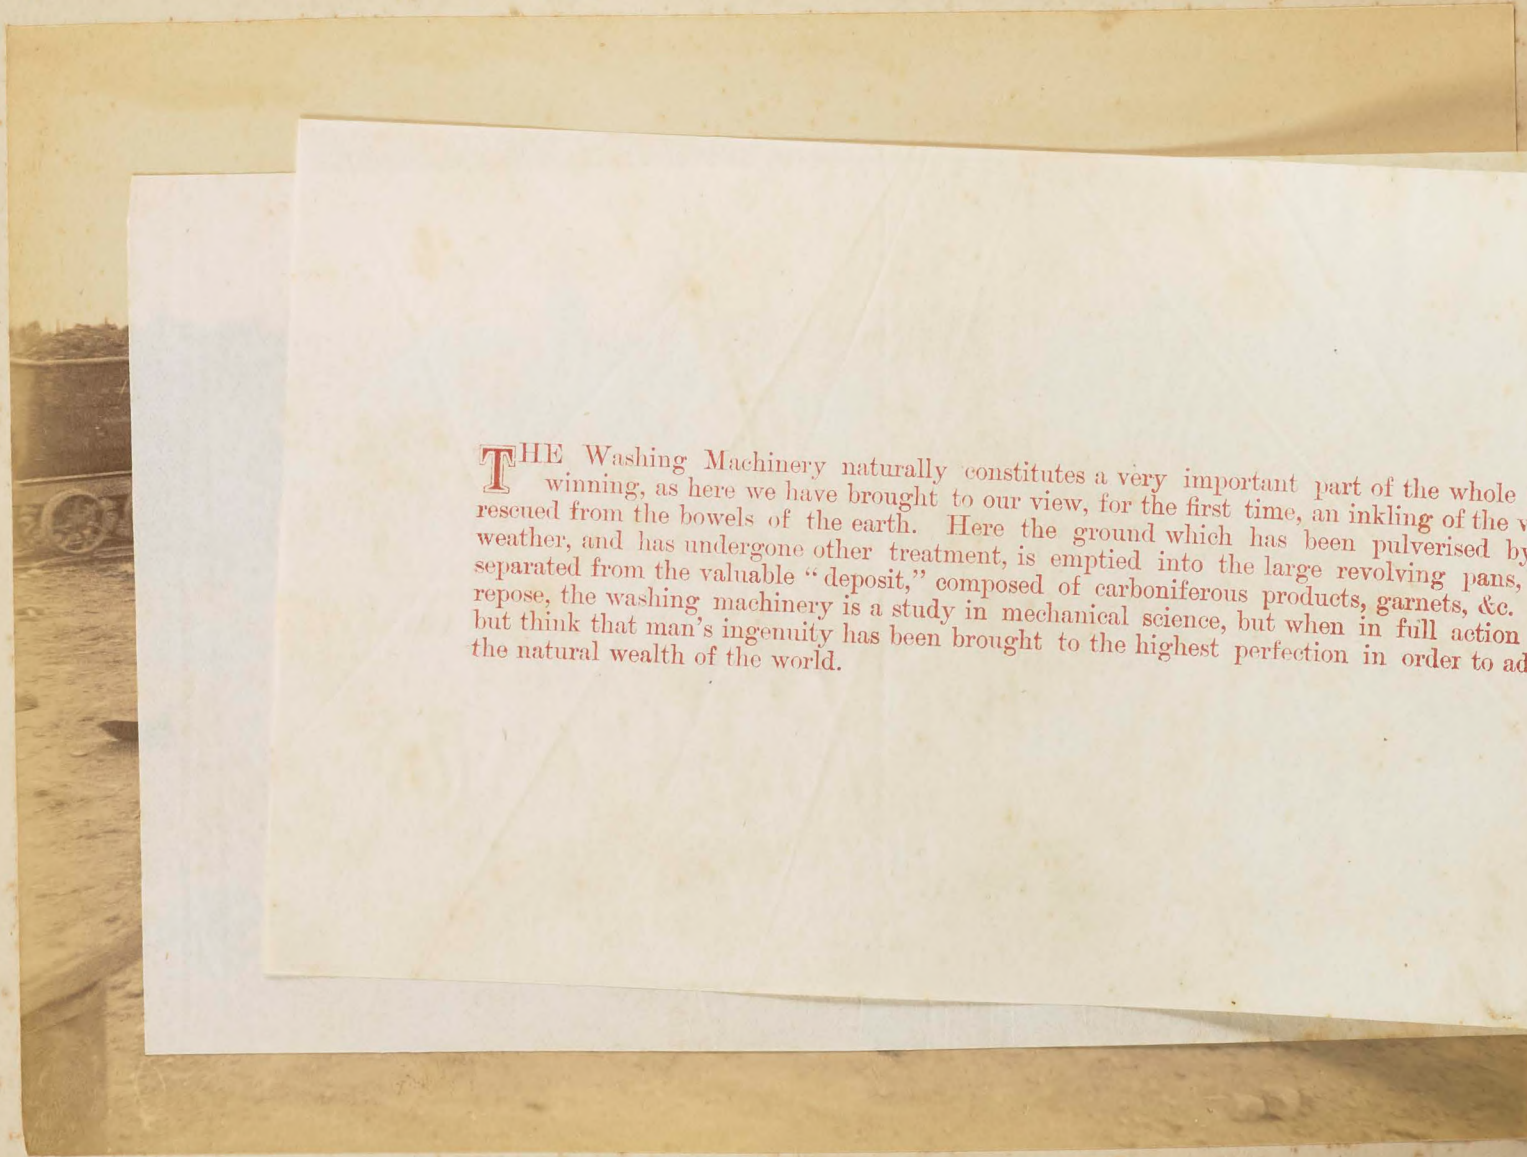 THE Washing Machinery naturally constitutes a very important part of the whole
winning, as here we have brought to our view, for the first time, an inkling of the
rescued from the bowels of the earth. Here the ground which has been pulverised by
weather, and has undergone other treatment, is emptied into the large revolving pans,
separated from the valuable “deposit,” composed of carboniferous products, garnets, &c.
repose, the washing machinery is a study in mechanical science, but when in full action
but think that man’s ingenuity has been brought to the highest perfection in order to
the natural wealth of the world.